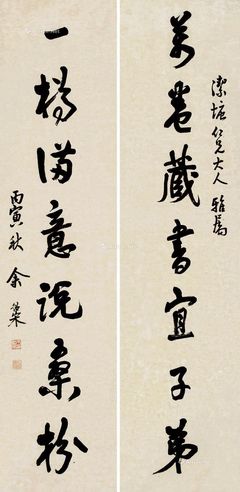 潔塘仁兄大人雅屬
萬卷藏書宜子弟
一 滿意說桑枌
丙寅秋 余